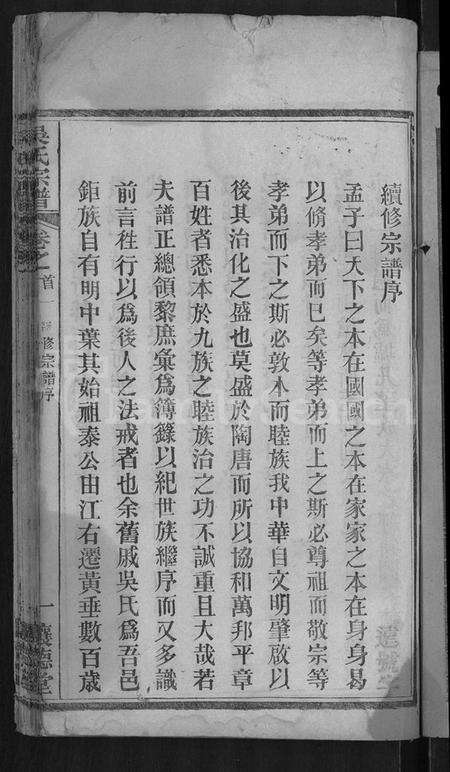 續修宗譜序
孟子曰天下之本在國國之本在家家之本在身身曷
以脩孝弟而已矣等孝弟而上之斯必尊祖而敬宗等
孝弟而下之斯必敦本而睦族我中華自文明肇啟以
後其治化之盛也莫盛於陶唐而所以協和萬邦平章
百姓者悉本於九族之睦族治之功不誠重且大哉若
夫譜正總領黎庶彙爲簿錄以紀世族繼序而又多識
前言徃行以爲後人之法戒者也余舊戚吳氏爲吾邑
鉅族自有明中葉其始祖泰公由江右遷黃垂數百歲
吳氏宗譜
卷之首
續修宗譜序
一
德堂